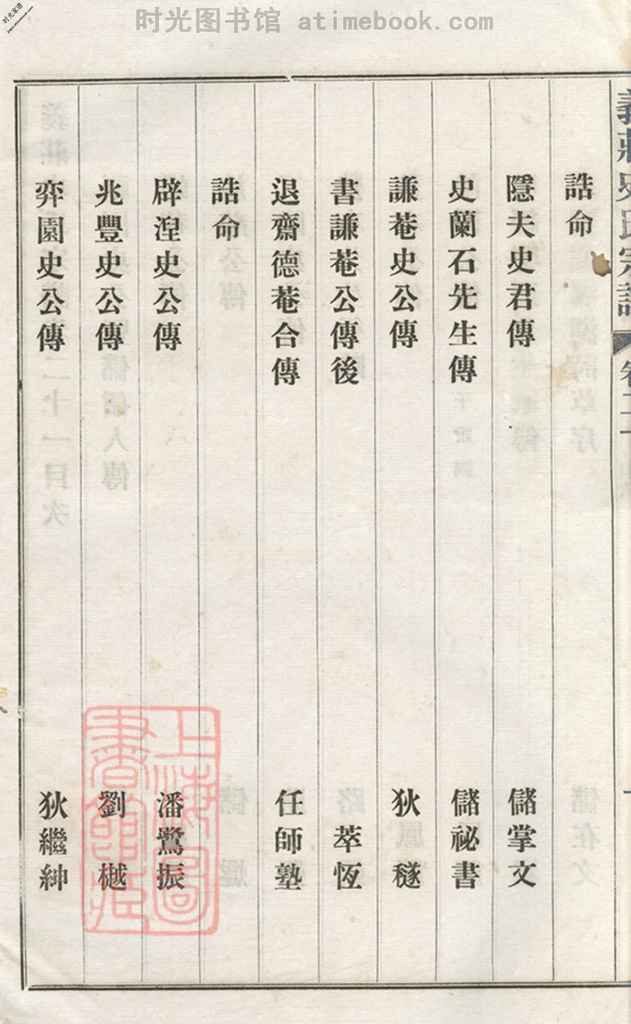 时光图书馆 atimebook.com
義莊史氏宗譜 卷二十一
誥命
隱夫史君傳 儲掌文
史蘭石先生傳 儲祕書
謙菴史公傳 狄 𥡴
書謙菴公傳後 萃恆
退齋德菴合傳 任師塾
誥命
辟湼史公傳 潘鷺振
兆豐史公傳 劉 樾
弈園史公傳 狄繼紳
上海圖書館藏